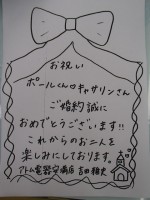 お祝い
ポールくん♡キャサリンさん
ご婚約誠に
おめでとうございます!!
これからのお二人を
楽しみにしております。
アトム電器安浦店 吉田雅史